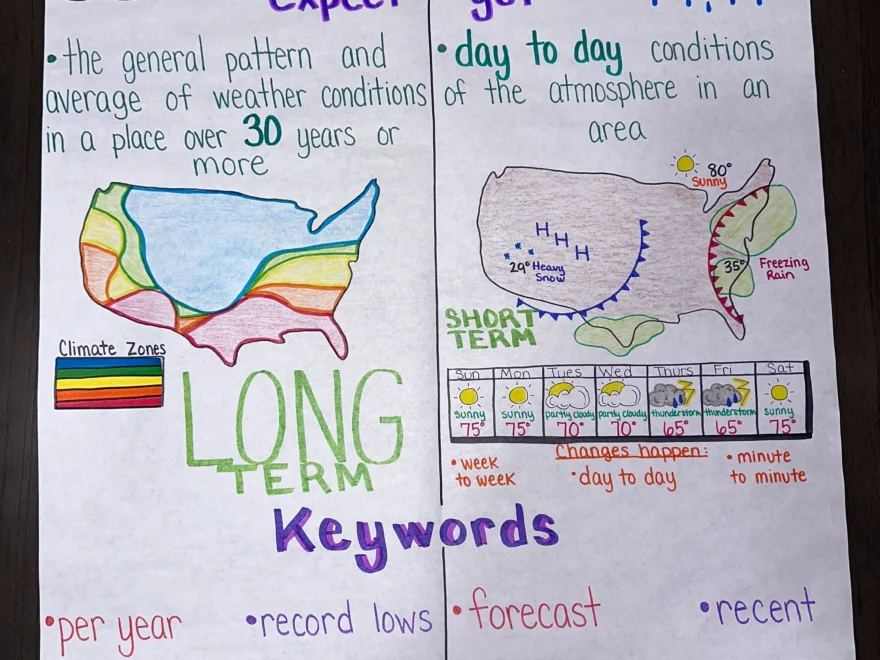 expect
get
•the general pattern and
average of weather conditions
in a place over 30 years or
more
Climate Zones
LONG
TERM
•day to day conditions
of the atmosphere in an
area
80°
Sunny
H H H
29° Heavy
Snow
35°
Freezing
Rain
SHORT
TERM
Sun Mon Tues Wed Thurs Fri Sat
sunny sunny partly cloudy partly cloudy thunderstorm thunderstorm sunny
75° 75° 70° 70° 65° 65° 75°
Changes happen:
•week
to week
•day to day
•minute
to minute
Keywords
•per year
•record lows
•forecast
•recent